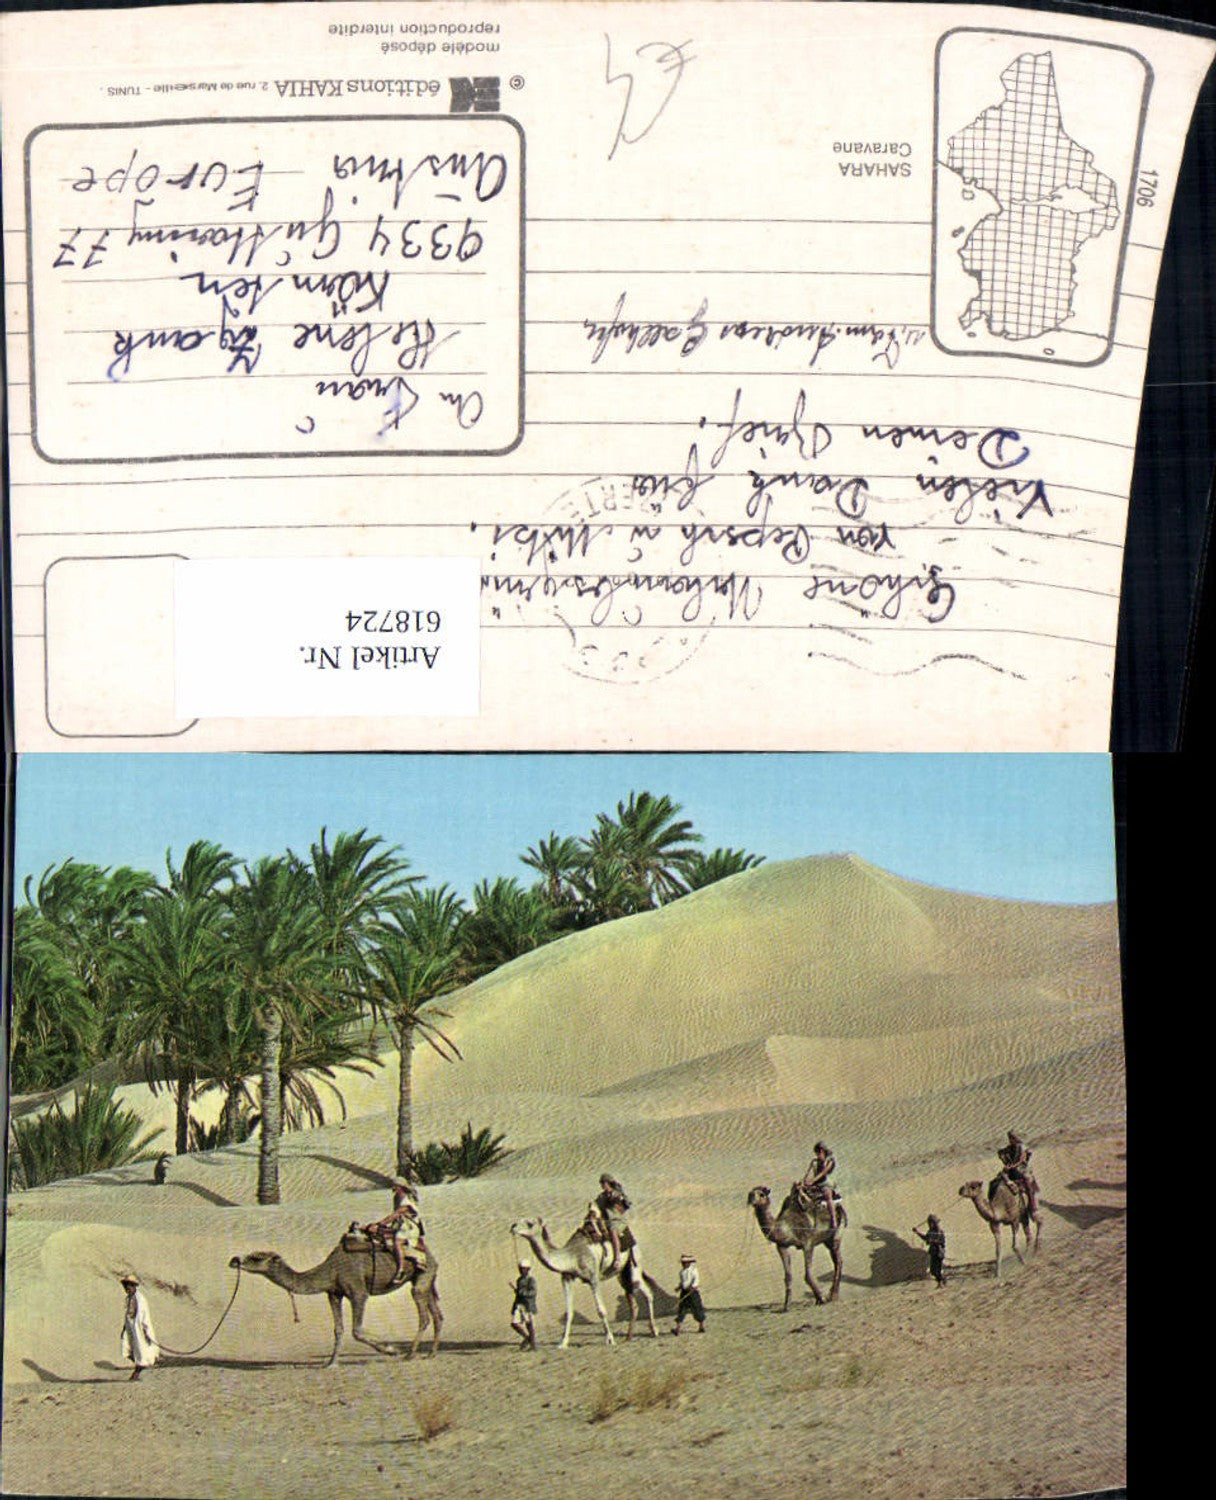 1706
SAHARA
Caravane
Schöne Urlaubsgrüße
von Pepsch u. Mitzi.
Vielen Dank für
Deinen Brief.
u. Fam. Andreas
An Frau
Helene
Kärnten
9334 Guttaring 77
Austria Europe
© éditions KAHIA 2, rue de Marseille - TUNIS.
modèle déposé
reproduction interdite
Artikel Nr.
618724